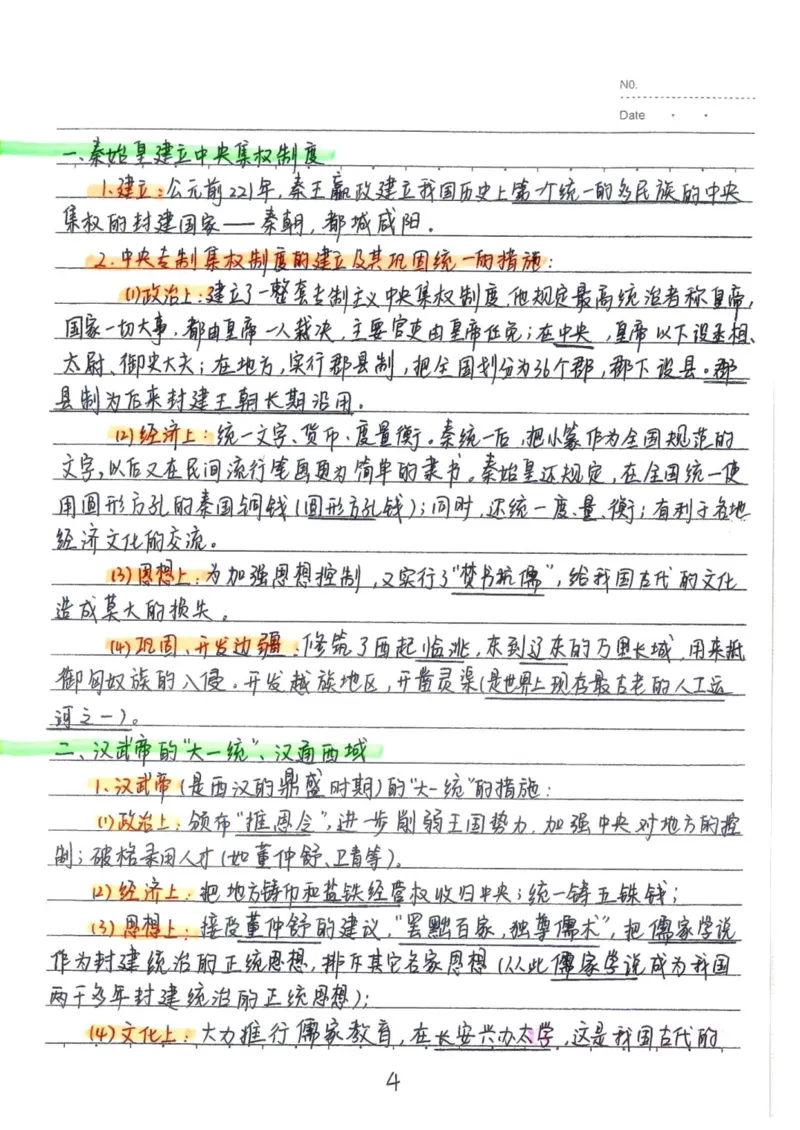 NO.
Date
一、秦始皇建立中央集权制度
1.建立:公元前221年,秦王嬴政建立我国历史上第一个统一的多民族的中央
集权的封建国家——秦朝,都城咸阳。
2.中央专制集权制度的建立及其巩固统一的措施:
(1)政治上:建立了一整套专制主义中央集权制度,他规定最高统治者称皇帝,
国家一切大事,都由皇帝一人裁决,主要官吏由皇帝任免;在中央,皇帝以下设丞相、
太尉、御史大夫;在地方,实行郡县制,把全国划分为36个郡,郡下设县。郡
县制为后来封建王朝长期沿用。
(2)经济上:统一文字、货币、度量衡。秦统一后,把小篆作为全国规范的
文字,以后又在民间流行笔画更为简单的隶书。秦始皇还规定,在全国统一使
用圆形方孔的秦国铜钱(圆形方孔钱);同时,还统一度、量、衡;有利于各地
经济文化的交流。
(3)思想上:为加强思想控制,又实行了“焚书坑儒”,给我国古代的文化
造成莫大的损失。
(4)巩固、开发边疆:修筑了西起临洮,东到辽东的万里长城,用来抵
御匈奴族的入侵。开发越族地区,开凿灵渠(是世界上现存最古老的人工运
河之一)。
二、汉武帝的“大一统”、汉通西域
1、汉武帝(是西汉的鼎盛时期)的“大一统”的措施:
(1)政治上:颁布“推恩令”,进一步削弱王国势力,加强中央对地方的控
制;破格录用人才(如董仲舒、卫青等)。
(2)经济上:把地方铸币和盐铁经营权收归中央;统一铸五铢钱;
(3)思想上:接受董仲舒的建议,“罢黜百家,独尊儒术”,把儒家学说
作为封建统治的正统思想,排斥其它各家思想(从此儒家学说成为我国
两千多年封建统治的正统思想);
(4)文化上:大力推行儒家教育,在长安兴办太学,这是我国古代的
4